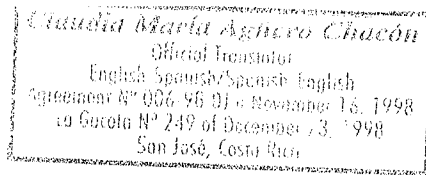 Claudia María Agüero Chacón
Official Translator
English Spanish/Spanish English
Agreement Nº 006-98 DJ November 16, 1998
La Gaceta Nº 249 of December 23, 1998
San José, Costa Rica